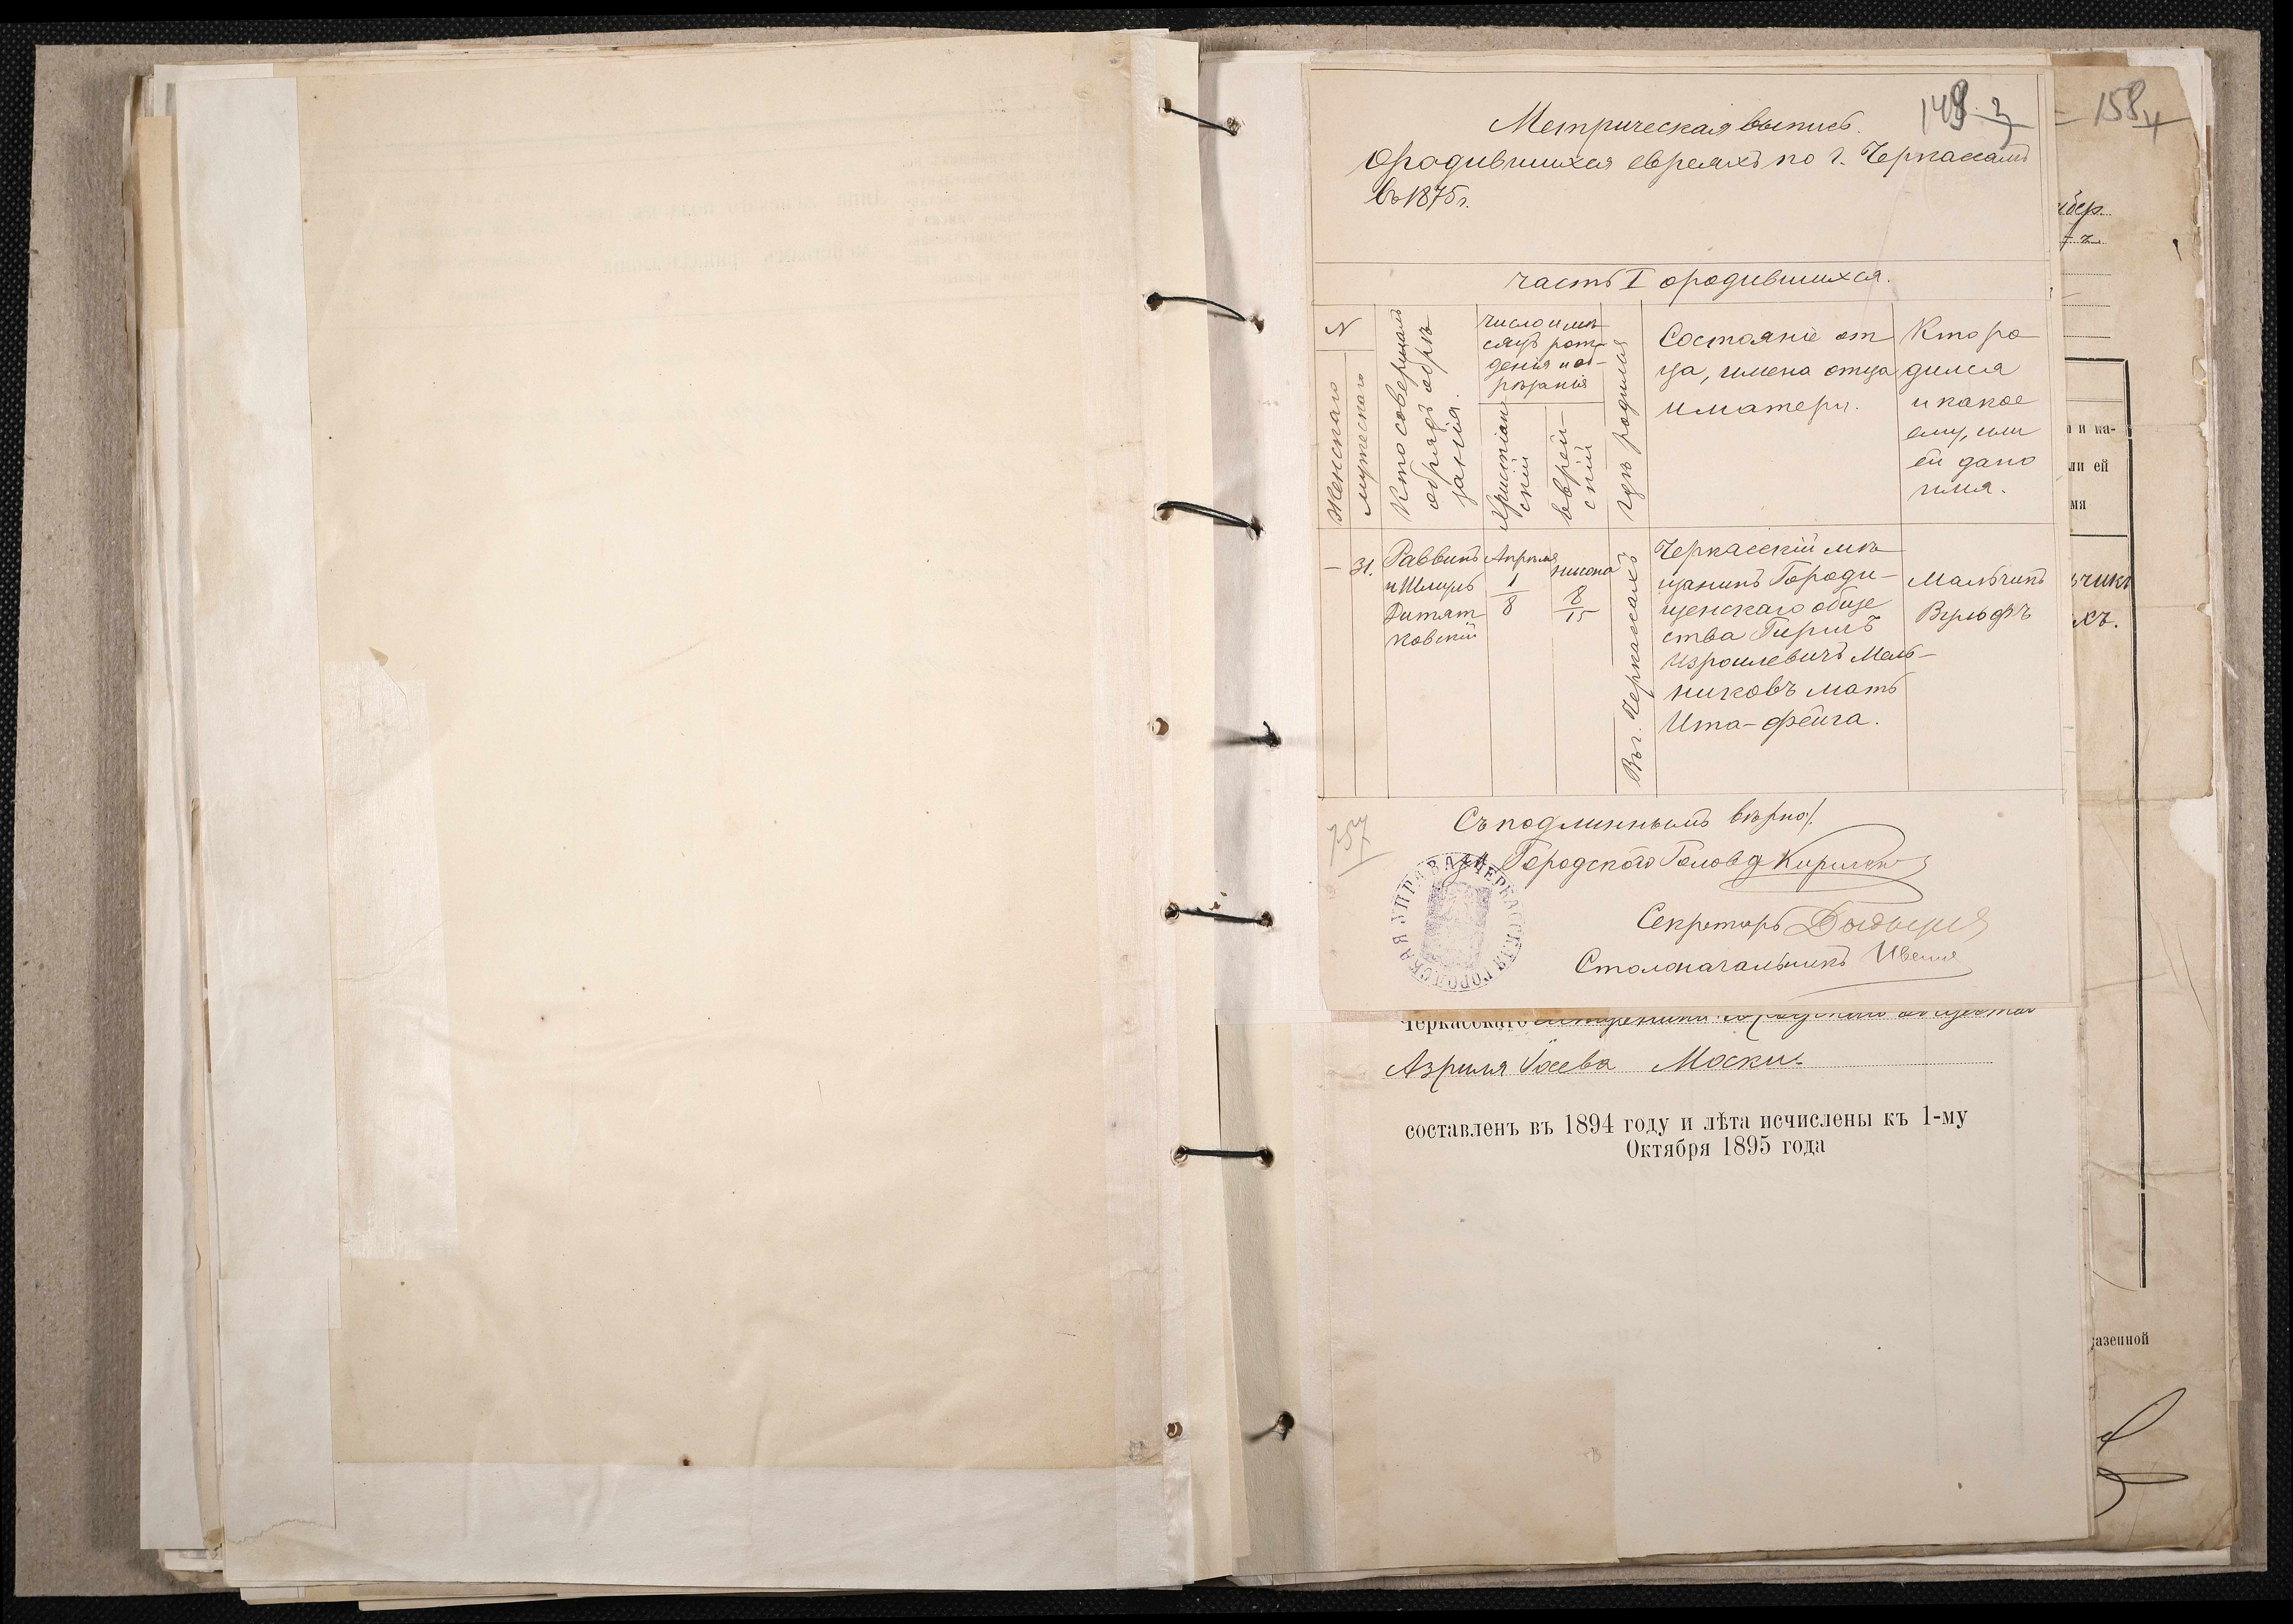 Метрическая выпись.
о родившихся евреяхъ по г. Черкассамъ
въ 1875 г.
149
158
Часть I о родившихся.
N
Женскаго
Мужескаго
Кто совершалъ
обрядъ обрѣ
занія.
Число и мѣ
сяцъ рож-
денія и об-
рѣзанія
Христіан
скій
Еврей-
скій
Гдѣ родился
Состояніе от
ца, имена отца
и матери.
Кто ро
дился
и какое
ему, или
ей дано
имя.
—
31.
Раввинъ
и Шмуль
Дитят
ковскій
Апрѣля
1
8
Нисона
8
15
Въ г. Черкассахъ
Черкасскій мѣ
щанинъ Городи-
щенскаго обще
ства Гиршъ
Изроилевичъ Мель-
никовъ мать
Ита-Фейга.
Мальчикъ
Вульфъ
757
Съ подлиннымъ вѣрно:
Городского Голова
Секретарь
Столоначальникъ
ЧЕРКАССКАЯ ГОРОДСКАЯ УПРАВА
Черкасскаго
Азриля Іосева Моски-
составленъ въ 1894 году и лѣта исчислены къ 1-му
Октября 1895 года
и ка-
ли ей
мя
ьчикъ
хъ.
азенной